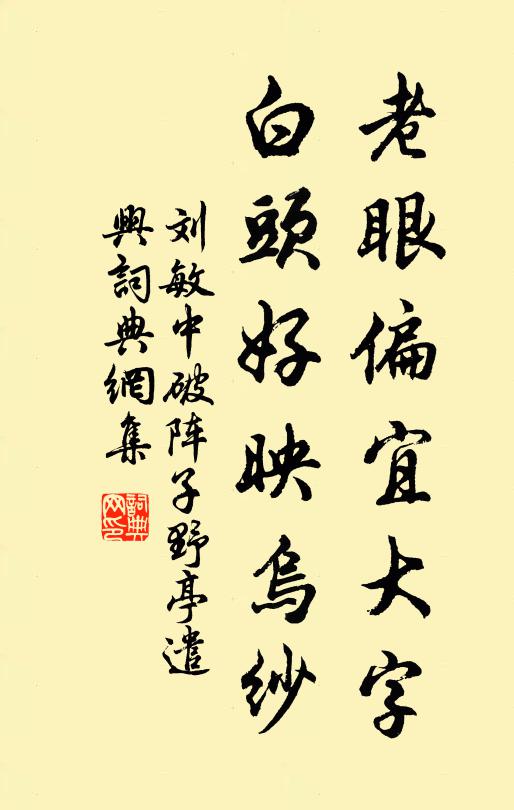 老眼偏宜大字
白頭好映烏紗
刘敏中破阵子野亭遣
興詞典網集
詞典網印